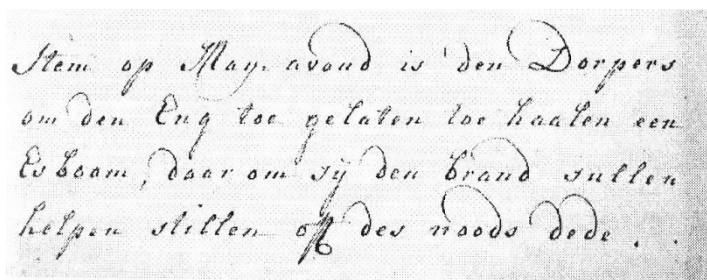 Item op May-avond is den Dorpers
om den Eng toe gelaten toe haalen een
Esboom, daar om sÿ den brand sullen
helpen stillen off des noods dede.